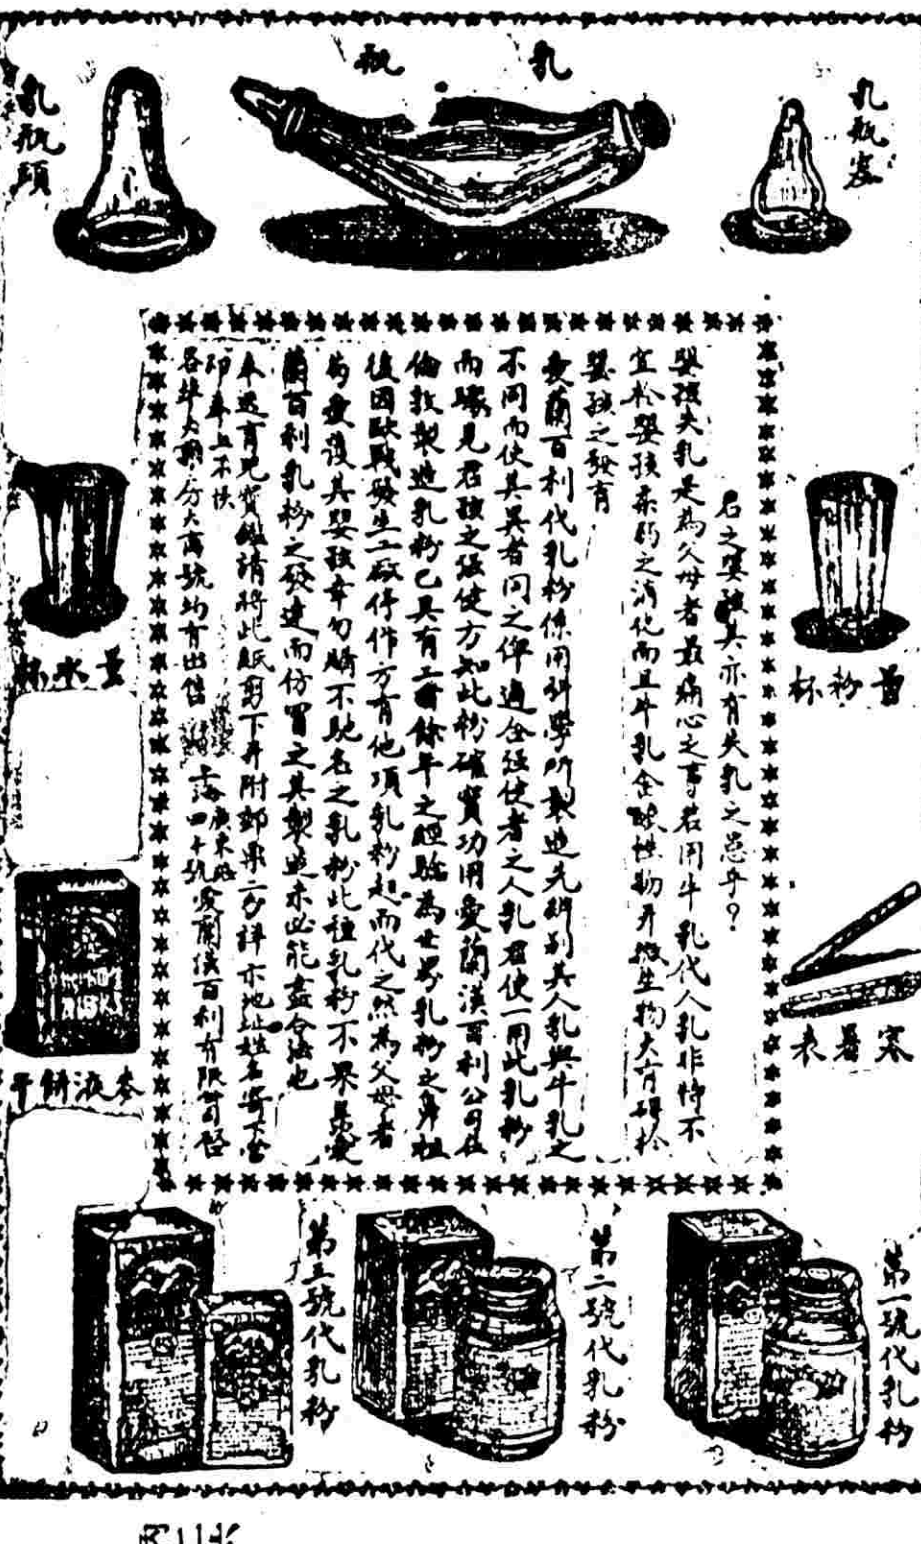 乳瓶
乳瓶塞
乳瓶頭
君之嬰孩其亦有失乳之患乎？
嬰孩失乳是為父母者最痛心之事若用牛乳代人乳非特不
宜於嬰孩柔弱之消化而且牛乳含酸性物并微生物大有碍於
嬰孩之發育
愛蘭百利代乳粉係用科學所製造先辨別其人乳與牛乳之
不同而使其異者同之俾適合强使者之人乳君使一用此乳粉
而驟見君孩之强使方知此粉確實功用愛蘭漢百利公司在
倫敦製造乳粉已具有二百餘年之經驗為世界乳粉之鼻祖
後因歐戰發生工廠停作方有他項乳粉起而代之然為父母者
為愛護其嬰孩幸勿購不馳名之乳粉此種乳粉不果
蘭百利乳粉之發達而仿冒之其製造未必能盡合法也
本送育兒寶鑑請將此紙剪下并附郵票二分詳示地址姓名寄下當
即奉上不悮
各埠大藥分大商號均有出售
上海
廣東路
四十號
愛蘭漢百利有限公司啓
量粉杯
量水杯
寒暑表
麥液餅干
第一號代乳粉
第二號代乳粉
第三號代乳粉